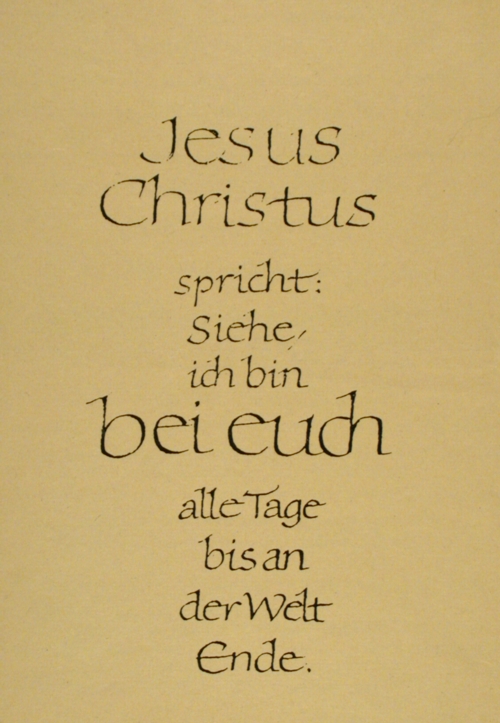 Jesus
Christus
spricht:
Siehe,
ich bin
bei euch
alle Tage
bis an
der Welt
Ende.